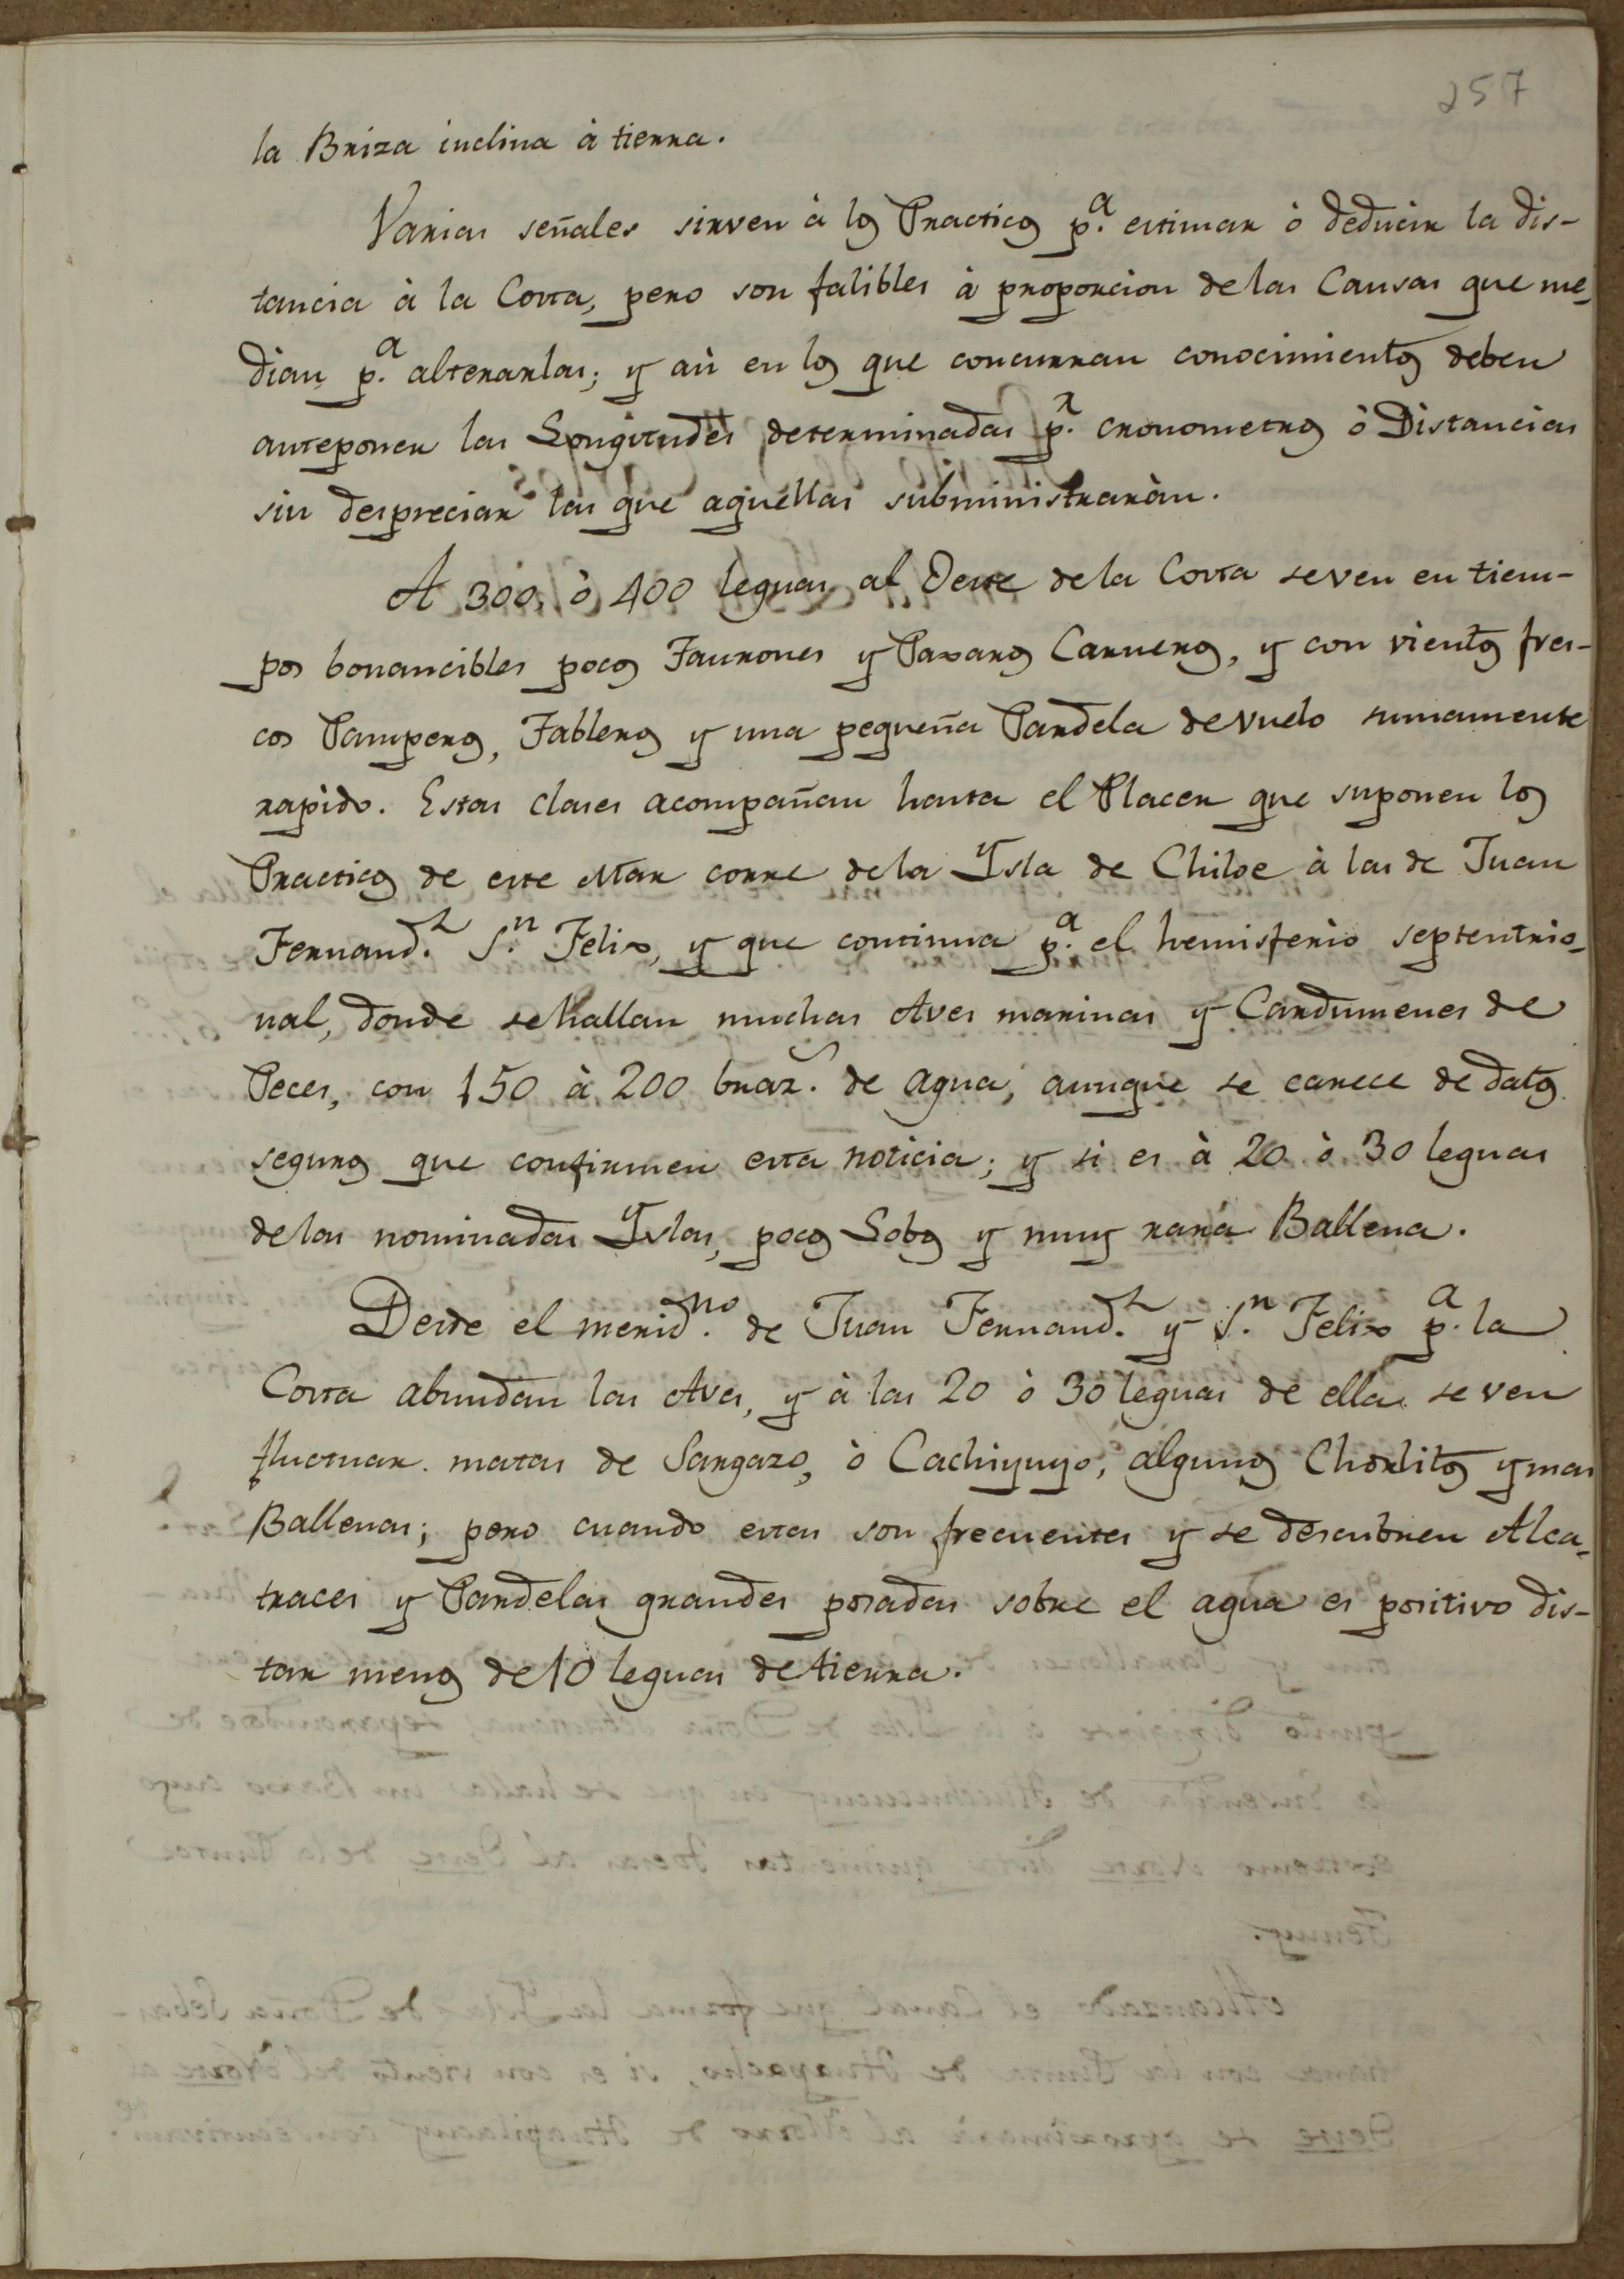 257
la Briza inclina à tierra.
Varias señales sirven à los Practicos p.ª estimar ò deducir la dis-
tancia à la Costa, pero son falibles à proporcion delas Causas que me-
dian p.ª alterarlas; y aù en los que concurran conocimientos deben
anteponer las Longitudes determinadas p.r cronometros ò Distancias
sin despreciar las que aquellas subministraràn.
A 300, ò 400 leguas al Oeste dela Costa seven en tiem-
pos bonancibles pocos Faurones y Paxaros Carneros, y con vientos fres-
cos Pamperos, Tableros y una pequeña Pardela de vuelo sumamente
rapido. Estas clases acompañan hasta el Placer que suponen los
Practicos de este Mar corre dela Ysla de Chiloe à las de Juan
Fernand.z S.n Felix, y que continua p.ª el hemisferio septentrio-
nal, donde sehallan muchas Aves marinas y Cardumenes de
Peces, con 150 à 200 braz.s de agua, aunque se carece de datos
seguros que confirmen esta noticia; y si es à 20 ò 30 leguas
delas nominadas Yslas, pocos Lobos y muy rara Ballena.
Desde el merid.no de Juan Fernand.z y S.n Felix p.ª la
Costa abundan las Aves, y à las 20 ò 30 leguas de ella se ven
fluctuar matas de Sargazo, ò Cachiyuyo, algunos Chorlitos y mas
Ballenas; pero cuando estas son frecuentes y se descubren Alca-
traces y Pardelas grandes posadas sobre el agua es positivo dis-
tar menos de 10 leguas de tierra.